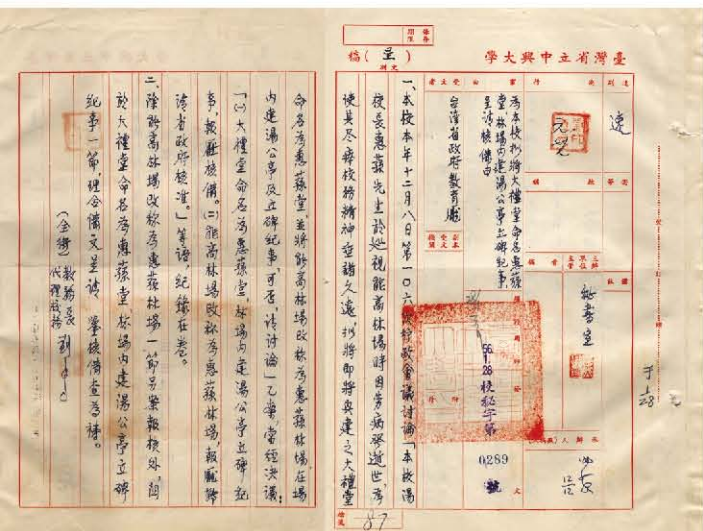 臺灣省立中興大學
稿（呈）
文別
速
秘書室
受文者
臺灣省政府教育廳
為本校擬將大禮堂命名惠蓀
堂、林場內建湯公亭立碑紀事
呈請核備由
56.1.28 校秘字第
0289
號
一、本校本年十二月八日第一〇六
會議討論「本校湯
校長惠蓀先生於巡視能高林場時因勞病發逝世，為
使其盡瘁校務精神垂諸久遠，擬將即將興建之大禮堂
命名為惠蓀堂，並將能高林場改稱為惠蓀林場，在場
內建湯公亭及立碑紀事，可否，請討論」乙案，當經決議：
「(一)大禮堂命名為惠蓀堂，林場內建湯公亭立碑紀
事，報廳核備。(二)能高林場改稱為惠蓀林場，報廳轉
請省政府核准。」等語，紀錄在卷。
二、除能高林場改稱為惠蓀林場一節另案報核外，關
於大禮堂命名為惠蓀堂、林場內建湯公亭立碑
紀事一節，理合備文呈請 鑒核備查為禱。
（全銜）教務長
代理校務 劉
87